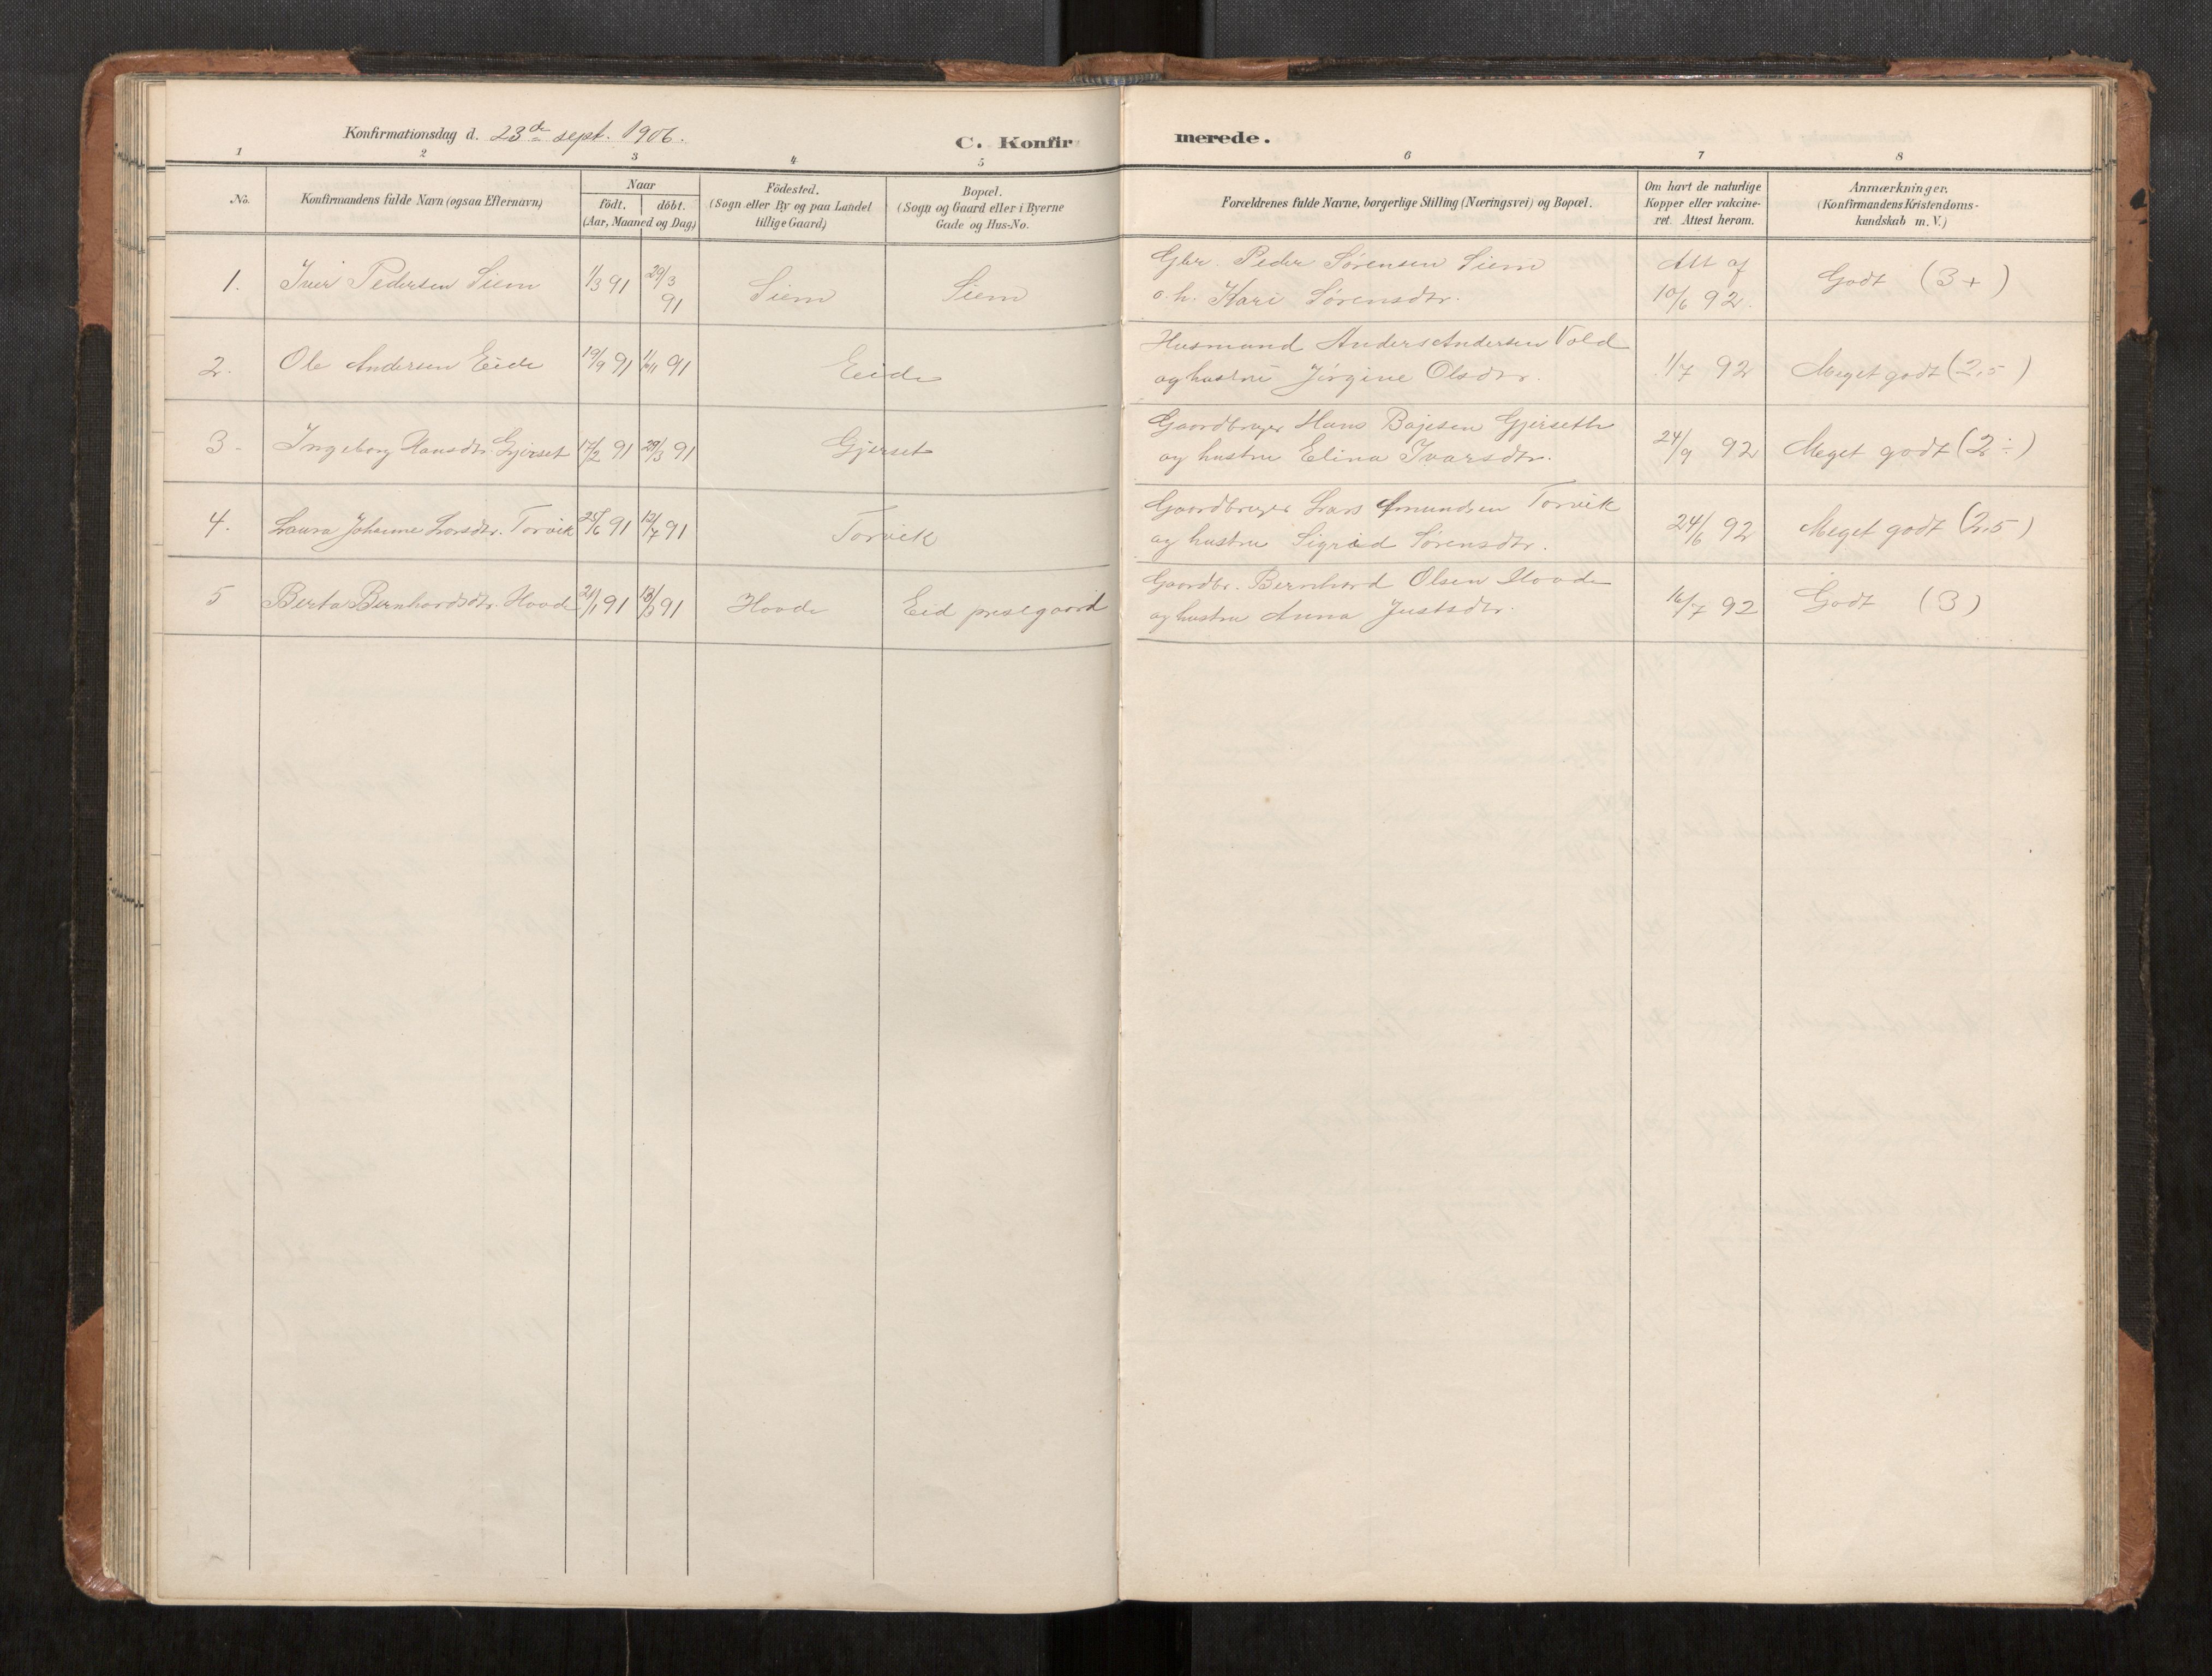 Konfirmationsdag d. 23de sept. 1906.
C. Konfirmerede.
1 2 3 4 5 6 7 8
No. Konfirmandens fulde Navn (ogsaa Efternavn) Naar födt. döbt. (Aar, Maaned og Dag) Födested. (Sogn eller By og paa Landet tillige Gaard) Bopæl. (Sogn og Gaard eller i Byerne Gade og Hus-No. Forældrenes fulde Navne, borgerlige Stilling (Næringsvei) og Bopæl. Om havt de naturlige Kopper eller vakcineret. Attest herom. Anmærkninger. (Konfirmandens Kristendomskundskab m. V.)
1. Iver Pedersen Siem 1/3 91 29/3 91 Siem Siem Gbr. Peder Sørensen Siem
o. h. Kari Sørensdtr. Att af 10/6 92. Godt (3+)
2. Ole Andersen Eide 19/9 91 1/11 91 Eide Husmand Anders Andersen Vold
og hustru Jørgine Olsdtr. 1/7 92 Meget godt (2,5)
3. Ingeborg Hansdtr. Gjerset 17/2 91 29/3 91 Gjerset Gaardbruger Hans Bajesen Gjerseth
og hustru Elina Ivarsdtr. 24/9 92 Meget godt (2÷)
4. Laura Johanne Larsdtr. Torvik 25/6 91 12/7 91 Torvik Gaardbruger Lars Amundsen Torvik
og hustru Sigrid Sørensdtr. 24/6 92 Meget godt (2,5)
5 Berta Bernhardsdtr. Hovde 21/1 91 91 Hovde Eid prestgaard Gaardbr. Bernhard Olsen Hovde
og hustru Anna Justsdtr. 16/7 92 Godt (3)